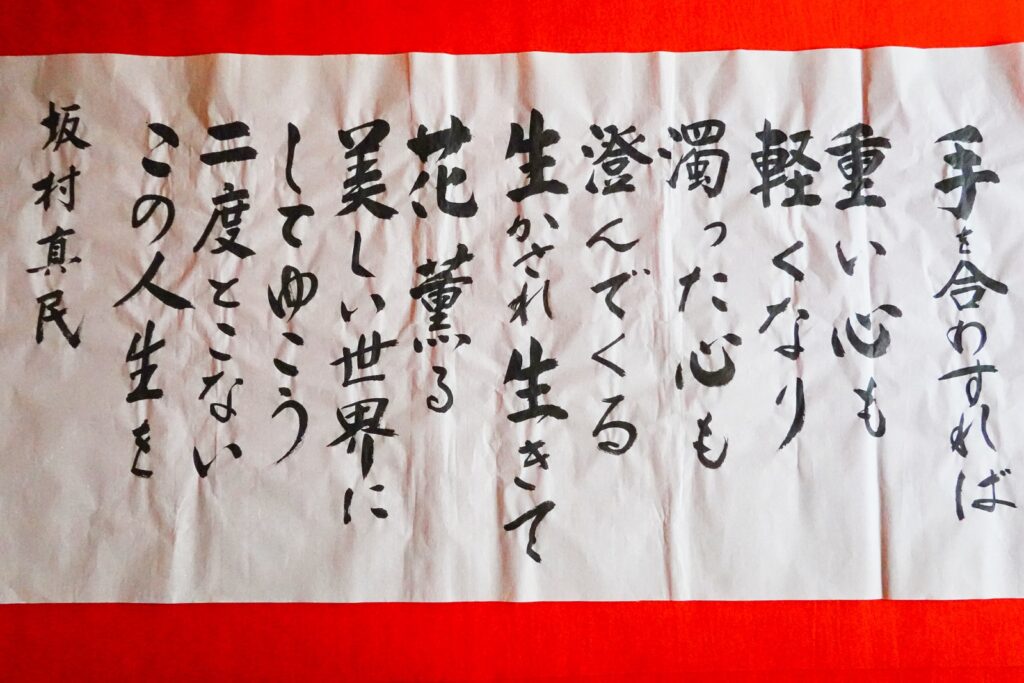 手を合わすれば
重い心も
軽くなり
濁った心も
澄んでくる
生かされ生きて
花薫る
美しい世界に
してゆこう
二度とこない
この人生を
坂村真民